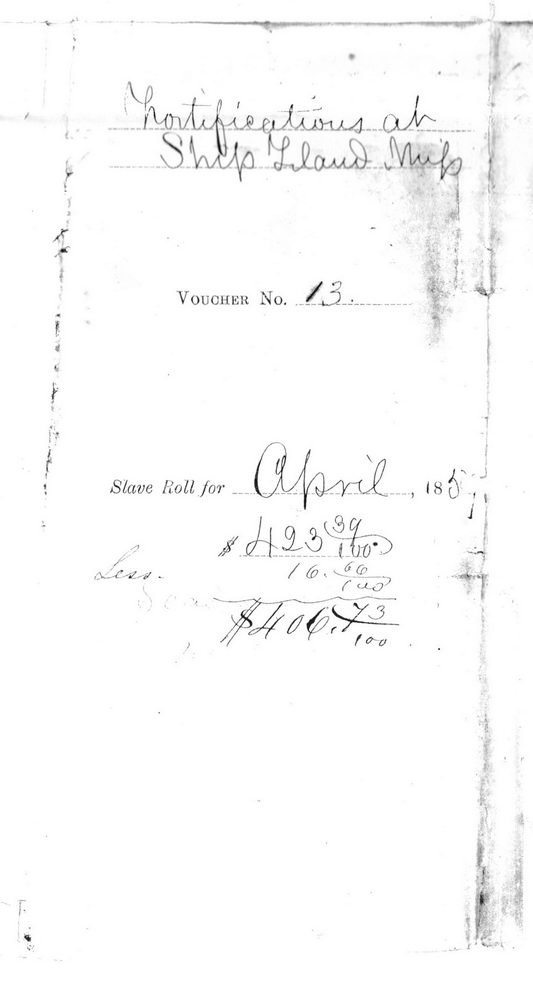 Fortifications at
Ship Island Miss
VOUCHER No. 13.
Slave Roll for April, 185
$ 423 39/100
Less. 16. 66/100
$406. 73/100